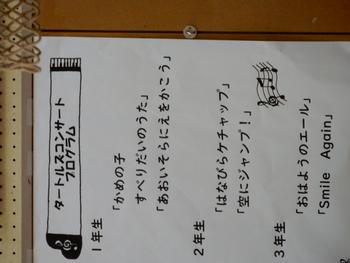 タートルズコンサート
プログラム
1年生
「かめの子
すべりだいのうた」
「あおいそらにえをかこう」
2年生
「はなびらケチャップ」
「空にジャンプ！」
3年生
「おはようのエール」
「Smile Again」